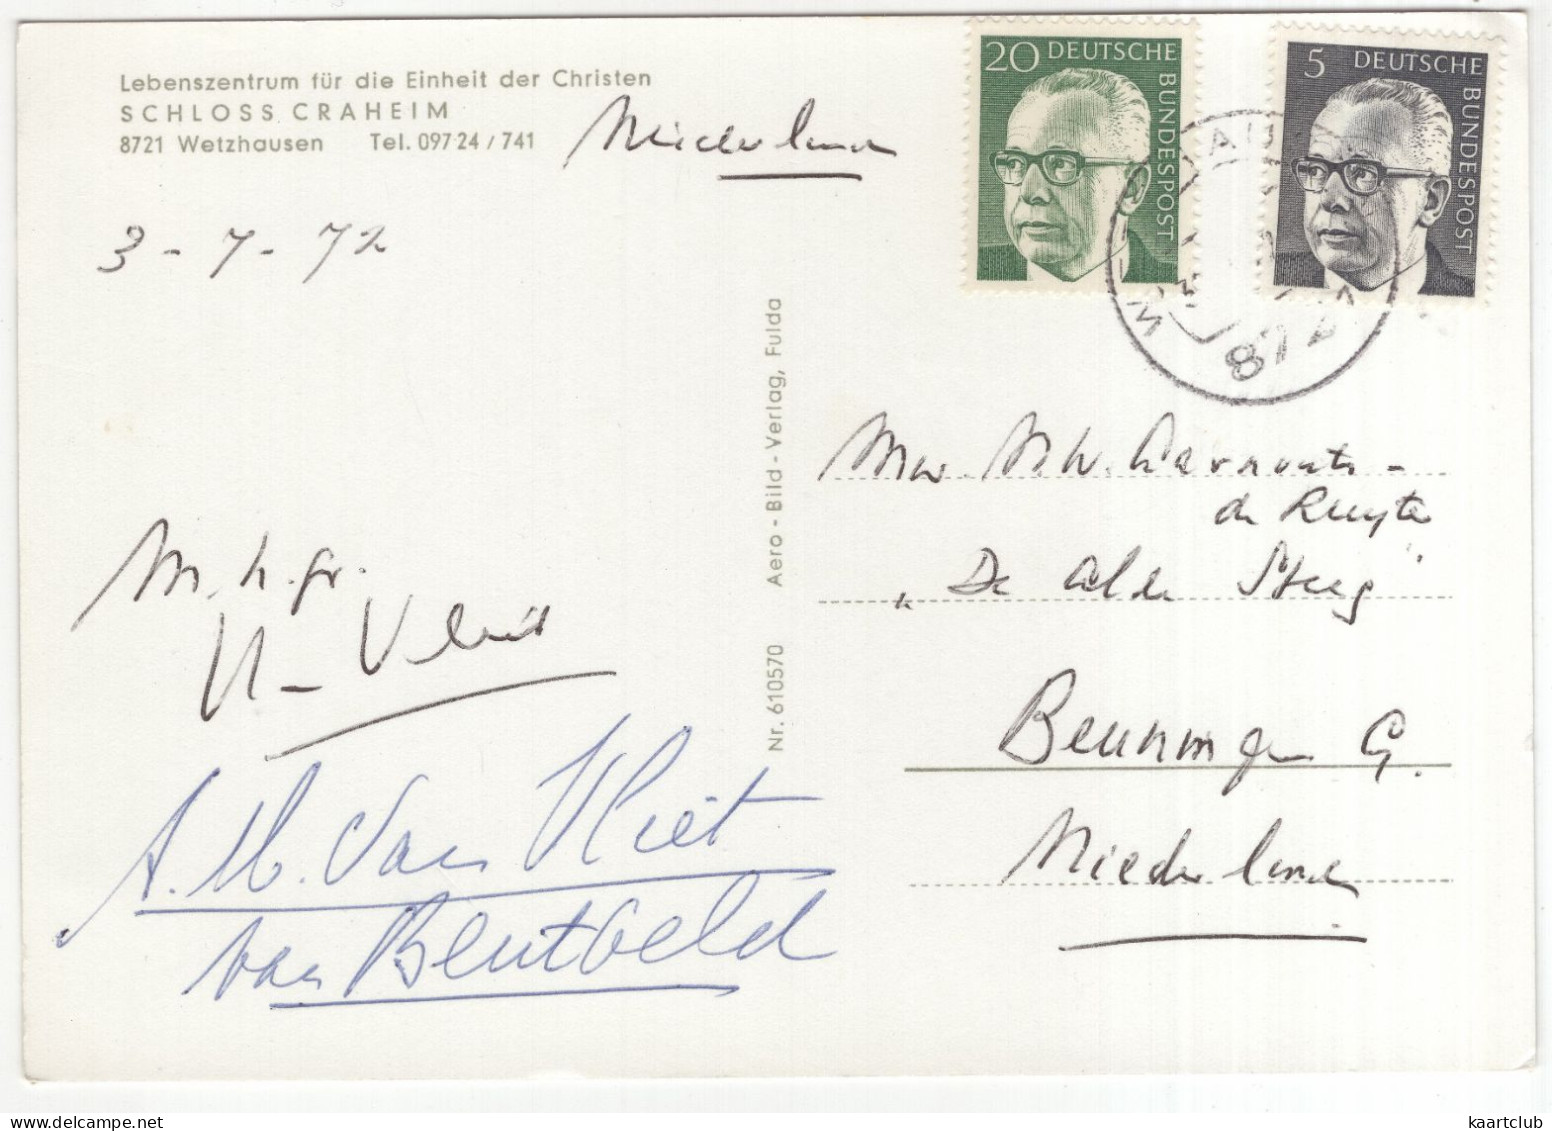 Lebenszentrum für die Einheit der Christen
SCHLOSS CRAHEIM
8721 Wetzhausen Tel. 09724/741
Niederland
20 DEUTSCHE
BUNDESPOST
5 DEUTSCHE
BUNDESPOST
3-7-72
872
Nr. 610570 Aero-Bild-Verlag, Fulda
Mw. M.W.
de Ruyter
"De Alde Steeg"
Beuningen G.
Niederland
M.h.gr.
A.M. van Vliet
van Bentveld
kaartclub